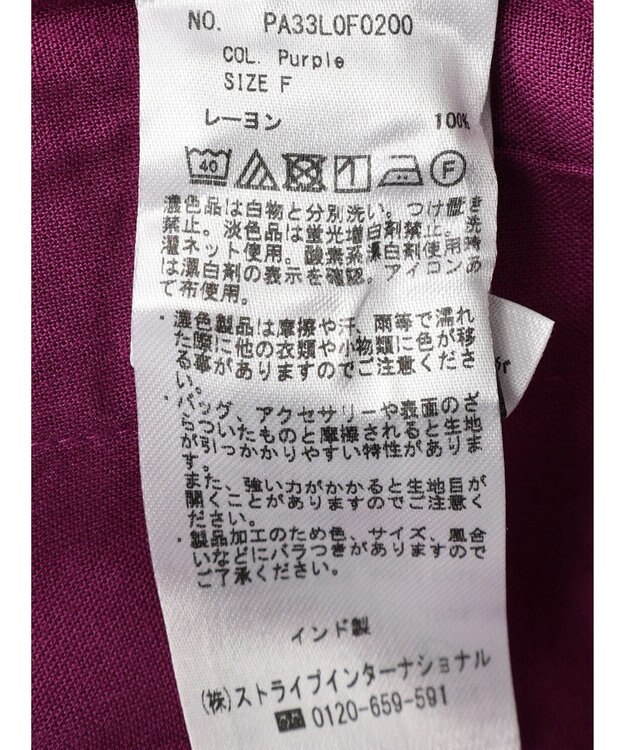 NO. PA33L0F0200
COL. Purple
SIZE F
レーヨン 100%
40 F
濃色品は白物と分別洗い。つけ置き
禁止。淡色品は蛍光増白剤禁止。洗
濯ネット使用。酸素系漂白剤使用時
は漂白剤の表示を確認。アイロンあ
て布使用。
・濃色製品は摩擦や汗、雨等で濡れ
た際に他の衣類や小物類に色が移
る事がありますのでご注意くださ
い。
・バッグ、アクセサリーや表面のざ
らついたものと摩擦されると生地
が引っかかりやすい特性がありま
す。
また、強い力がかかると生地目が
開くことがありますのでご注意く
ださい。
・製品加工のため色、サイズ、風合
いなどにバラつきがありますので
ご了承ください。
インド製
(株)ストライプインターナショナル
0120-659-591